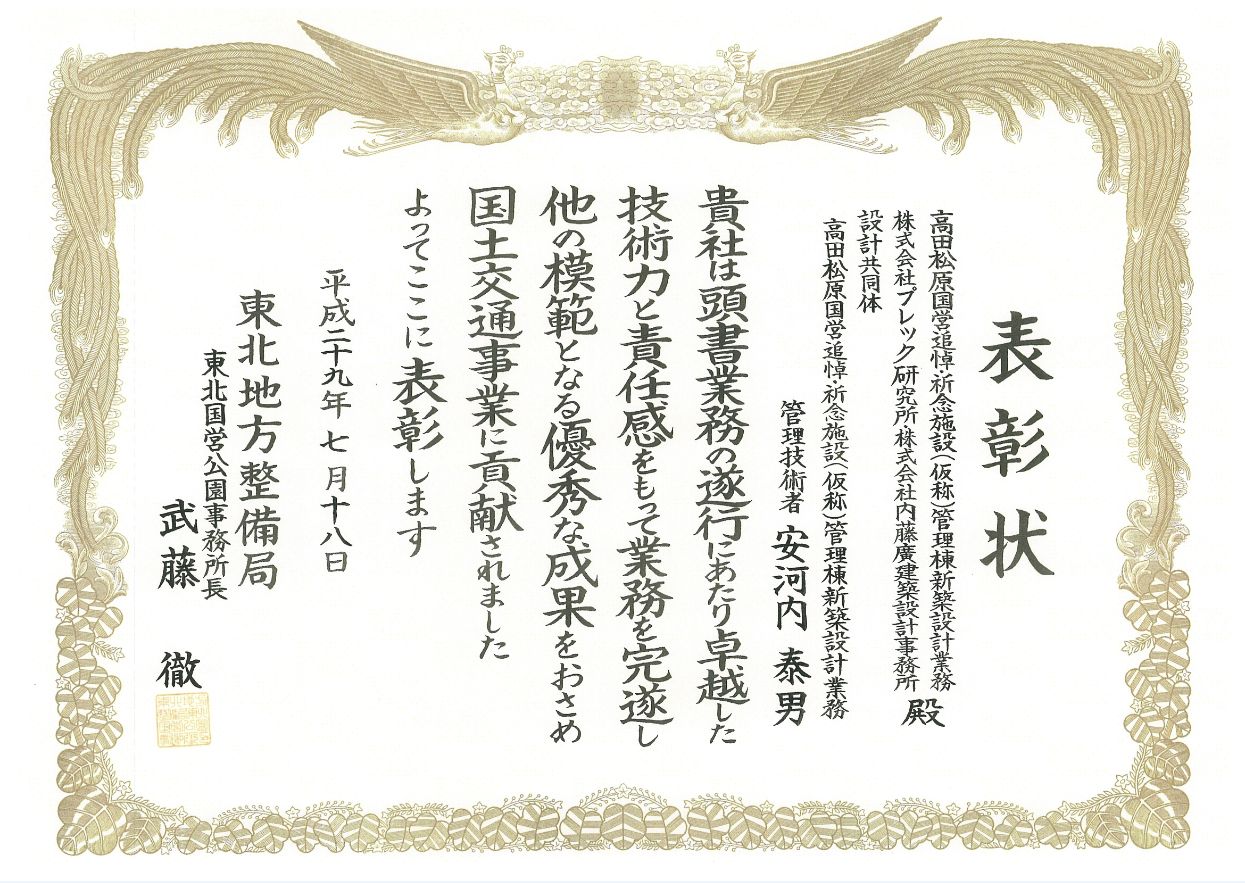 表彰状
高田松原国営追悼・祈念施設(仮称)管理棟新築設計業務
株式会社プレック研究所・株式会社内藤廣建築設計事務所
設計共同体
殿
高田松原国営追悼・祈念施設(仮称)管理棟新築設計業務
管理技術者 安河内 泰男
貴社は頭書業務の遂行にあたり卓越した
技術力と責任感をもって業務を完遂し
他の模範となる優秀な成果をおさめ
国土交通事業に貢献されました
よってここに表彰します
平成二十九年 七月十八日
東北地方整備局
東北国営公園事務所長
武藤 徹